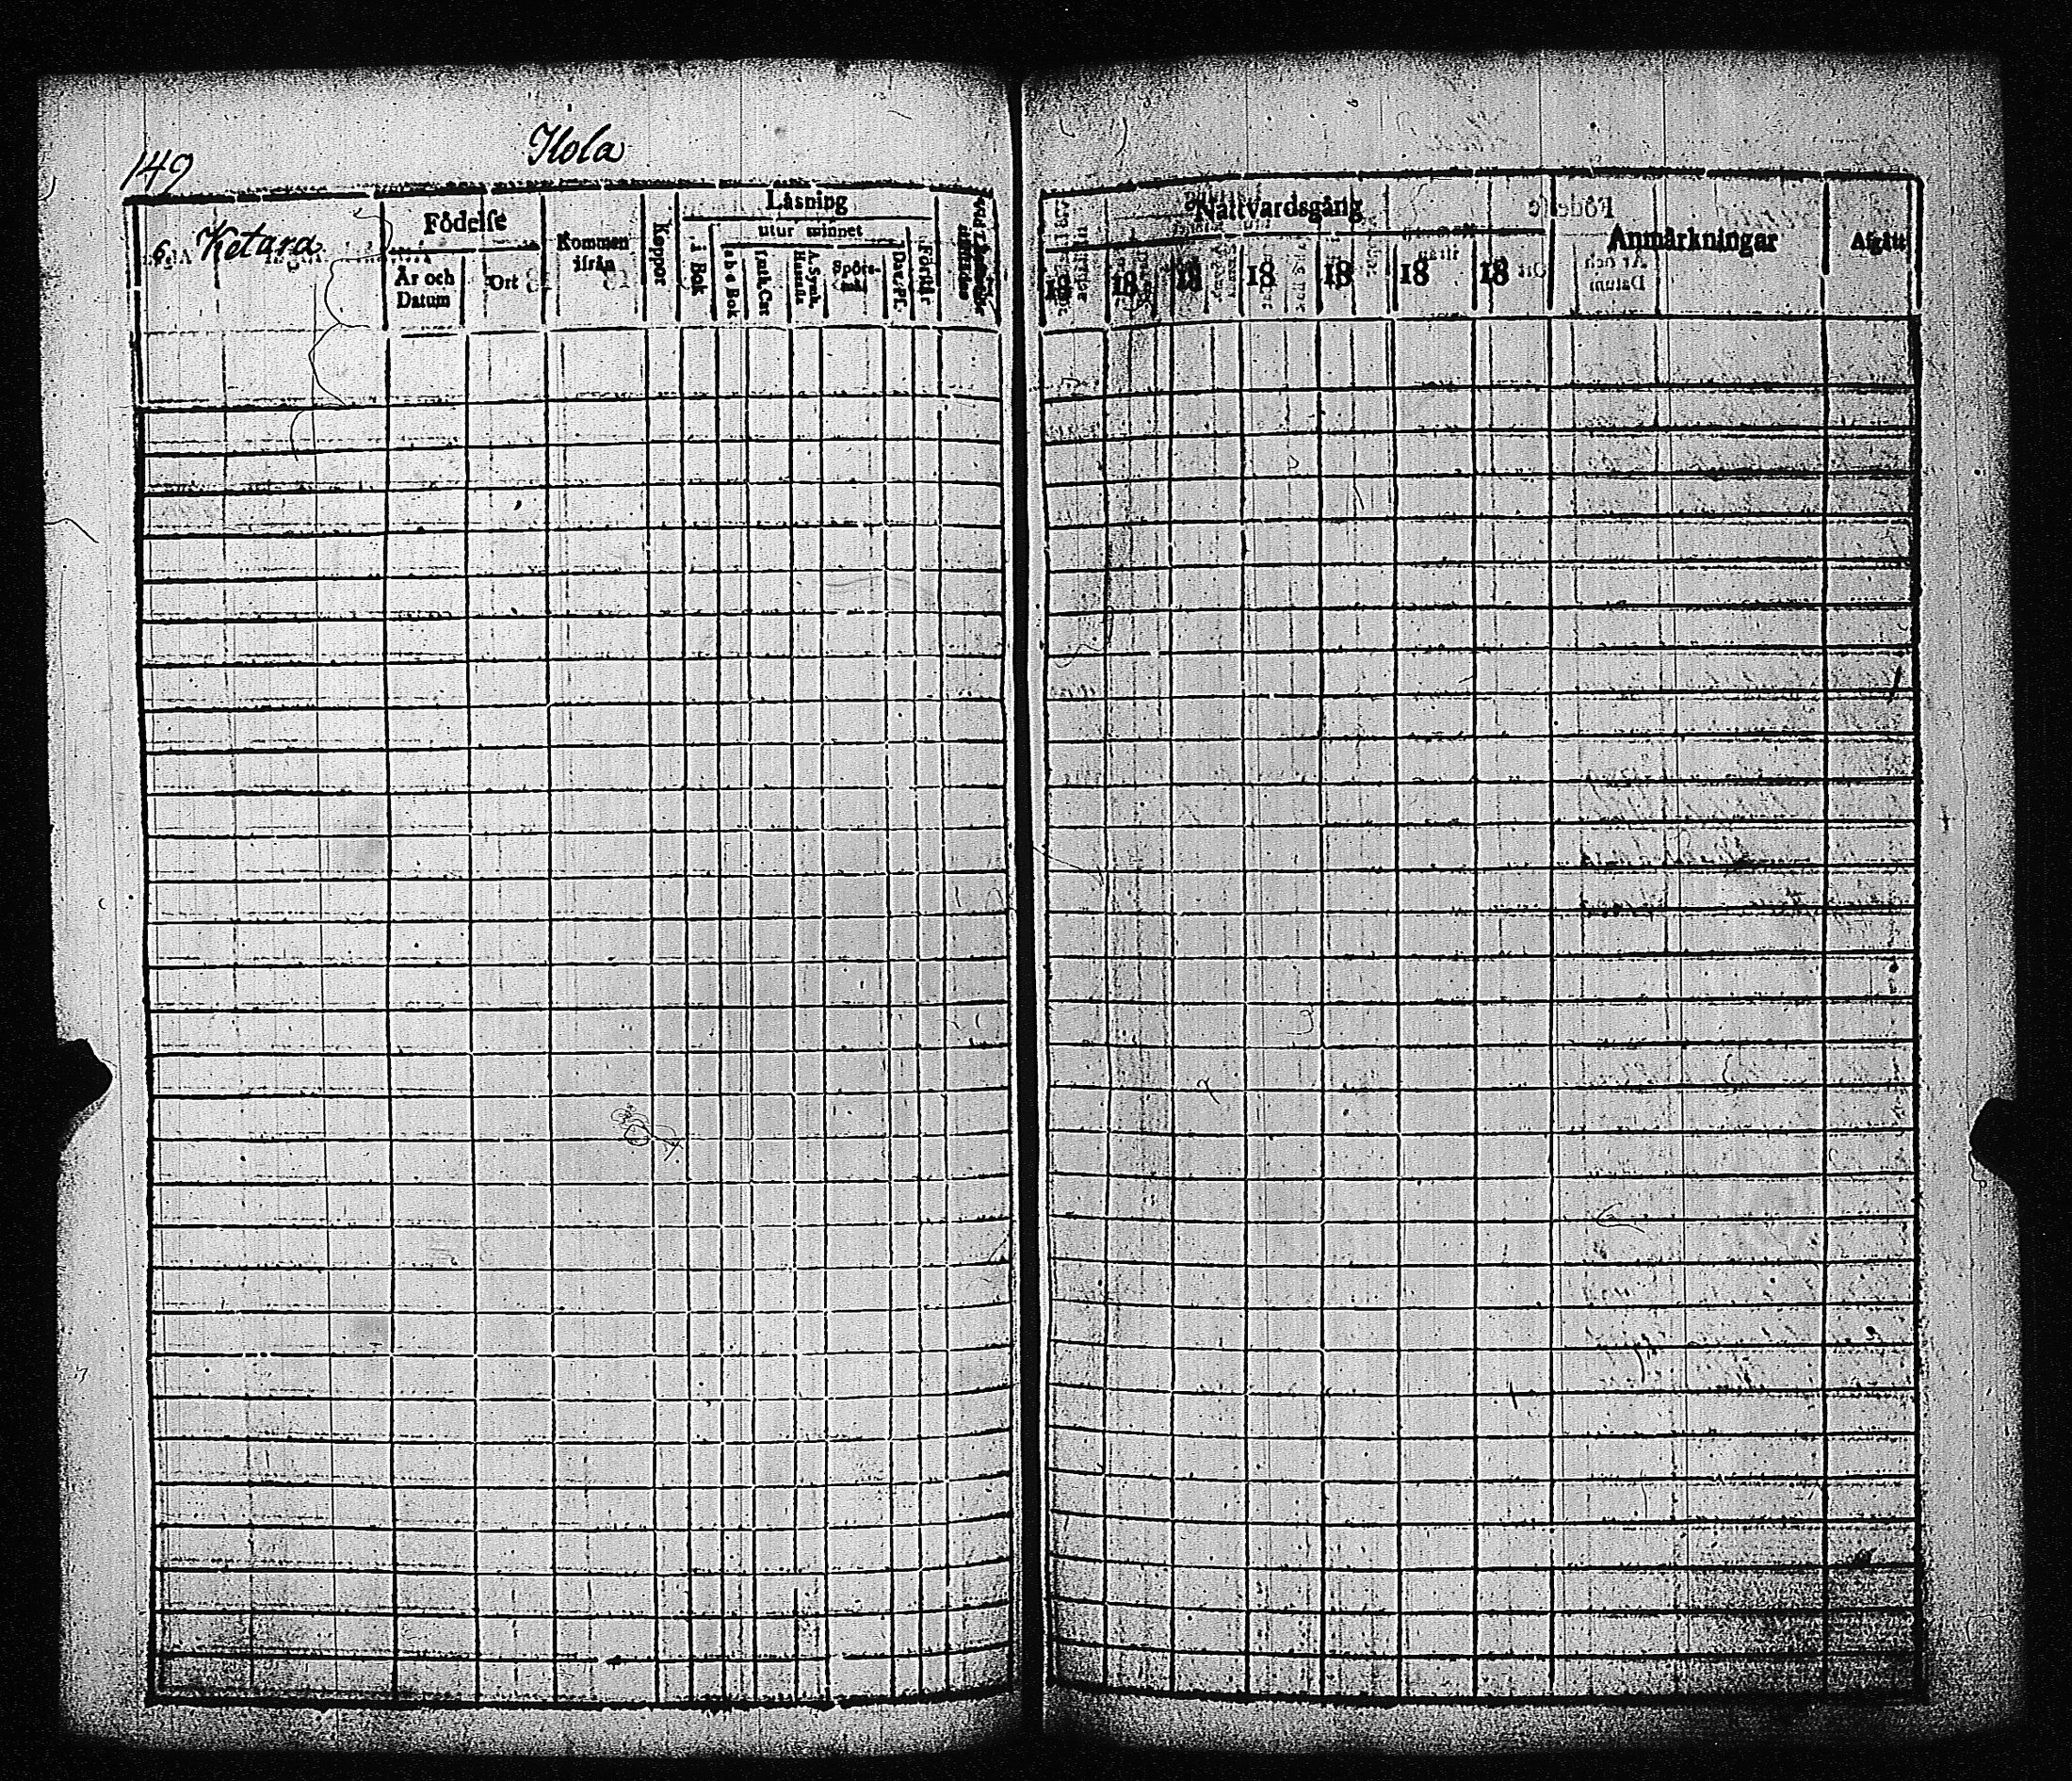 149
Ilola
6. Ketara
Födelse
År och Datum
Ort
Kommen ifrån
Koppor
Läsning
i Bok
utur minnet
a b c Bok
Luth. Cat
A. Symb. Hustafla
Spörs-mål
Dav. Ps.
Förstår
Nattvardsgång
18 18 18 18 18 18 18
Anmärkningar
Afgått